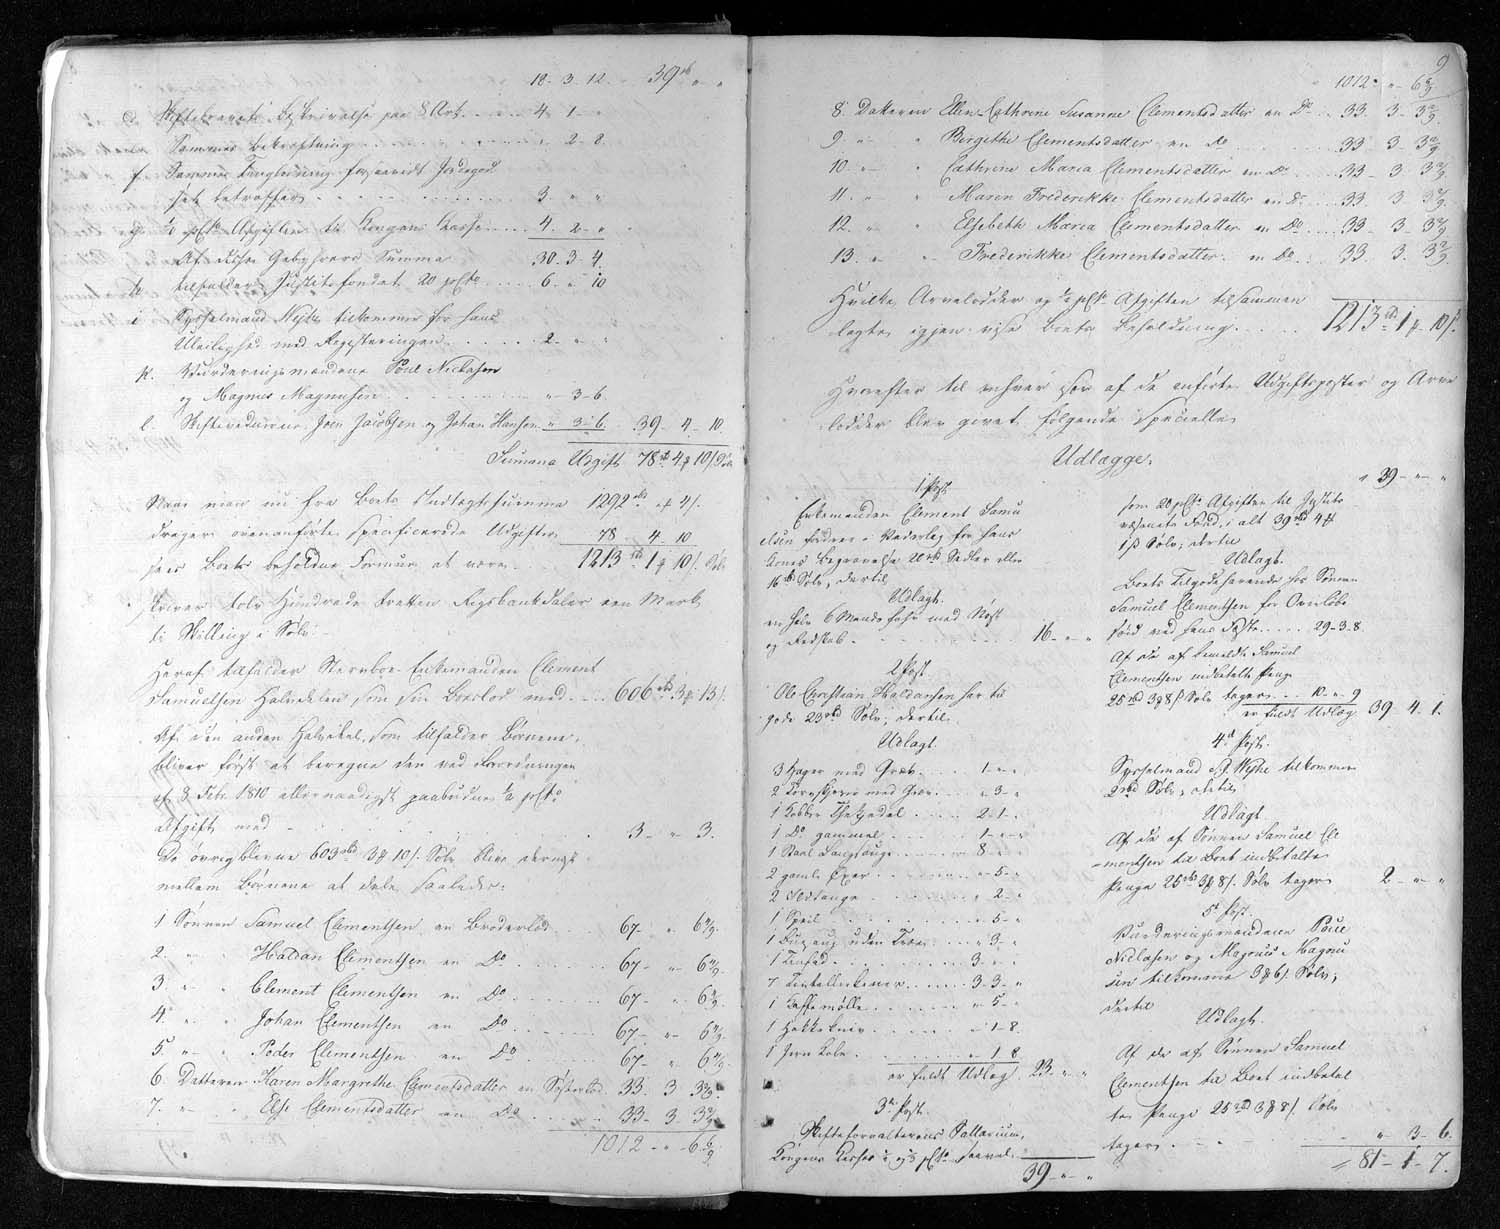 18. 3. 12. 39 rb " "
e. Skiftebrevets Beskrivelse paa 8 Ark . . . . 4. 1. "
Sammes Bekræftning . . . . . . " 2. 8.
f. Sammes Tinglæsning forsaavidt Jordegod
set betræffer . . . . . . 3. " "
g. Afgiften til Kongens Kasse . . . . 4. 2. "
Af disse Gebyhrers Summa 30. 3. 4.
h. tilfalder Justitsfondet 20 pCto . . . . 6. " 10
i. Sysselmand tilkommer for hans
Uleilighed med Registeringen . . . . 2. " "
k. Vurderingsmændene Poul Niclasen
og Magnus Magnusen . . . . . . " 3-6
l. Skiftevidnerne Joen Jacobsen og Johan Hansen " 3-6. 39 - 4 - 10.
Summa Udgift 78 rb 4 10 Sølv
Naar man nu fra Boets Indtægtssumma 1292 rbd " 4
drager ovenanførte specificerede Udgifter 78 - 4 - 10
sees Boets beholdne Formue at være . . 1213 rbd 1 10 Sølv
skriver tolv Hundrede tretten Rigsbankdaler een Mark
ti Skilling i Sølv.
Heraf tilfalder Enkemanden Clement
Samuelsen Halvdelen som sin Boeslod med . . . 606 rbd 3 13
Af den anden Halvdel, som tilfalder Børnene,
bliver først at beregne den ved Forordningen
af 8 Febr. 1810 allernaadigst paabudne ½ pCto
Afgift med . . . . 3 - " 3.
De øvrigblevne 603 rbd 3 10 Sølv blive dernæst
mellem Børnene at dele saaledes:
1 Sønnen Samuel Clementsen en Broderlod . . . 67 - " 6
2. " " Haldan Clementsen en Do . . . 67 - " 6
3. " " Clement Clementsen en Do . . . 67 - " 6
4. " " Johan Clementsen en Do . . . 67 - " 6
5. " " Peder Clementsen en Do . . . 67 - " 6
6. Datteren Karen Margrethe Clementsdatter en Søsterlod 33. 3. 3
7. " " Else Clementsdatter en Do . . . 33 - 3 - 3
1012 - " - 6
9
1012 - " - 6
8. Datteren Ellen Cathrine Susanne Clementsdatter en Do . . 33. 3 - 3
9. " " Birgithe Clementsdatter en Do . . . 33. 3 - 3
10. " " Cathrine Maria Clementsdatter en Do . . . 33 - 3 3
11. " " Maren Frederikke Clementsdatter en Do . . . 33. 3 3
12. " " Elsebeth Maria Clementsdatter en Do . . . 33 - 3 - 3
13. " " Frederikke Clementsdatter en Do . . . 33. 3. 3
Hvilke Arvelodder og ½ pCto Afgiften tilsammen
lagte igjen vise Boets Beholdning . . . . 1213 rbd 1 10
Hvorefter til enhver især af de anførte Udgiftsposter og Arve
lodder blev gjort følgende specielle
Udlægge:
1 Post
Enkemanden Clement Samu
elsen fordrer i Vederlag for hans
Kones Begravelse 20 rbd Sedler eller
16 rbd Sølv, dertil
Udlagt.
en halv 6 Mands far med Nøst
og Redskab . . . . . . 16 - " "
2 Post
Ole Christian Haldansen har til
gode 23 rbd Sølv, dertil
Udlagt.
3 Hager med Græb . . . . 1 - " -
2 Torvskjerer med Græb . . . " 3 - "
1 Kobber Theekedel . . . . 2 - 1 -
1 Do gammel . . . . 1 - " -
1 . . . . 8 - "
2 gamle Øxer . . . . " 5 - "
2 Ildtange . . . . " 2 - "
1 Speil . . . . " 5 - "
1 uden . . . . " 3 - "
1 Tinfad . . . . 3. " -
7 Tintallerkener . . . . 3. 3 - "
1 Caffemølle . . . . " 5 - "
1 Hakkekniv . . . . " 1 - 8.
1 Jern . . . . " 1 8
er fuldt Udlæg 23 - " "
3de Post.
Skifteforvalterens Sallarium,
Kongens Kasses pCto saavel . 39 - " "
" 39 - " "
som 20 pCto Afgiften til Justits
væsenets Fond, i alt 39 rbd 4
1 ß Sølv, dertil
Udlagt.
Boets Tilgodehavende hos Sønnen
Samuel Clementsen for Overløbs
. . . . 29 - 3 - 8.
Af de af bemeldte Samuel
Clementsen indbetalte Penge
25 rbd 3 8 Sølv tages . . . 10 - " 9
er fuldt Udlæg 39 - 4 - 1.
4de Post.
Sysselmand tilkommer
2 rbd Sølv, dertil
Udlagt
Af de af Sønnen Samuel Cle
mentsen til Boet indbetalte
Penge 25 rbd 3 8 Sølv tages 2 - " "
5te Post
Vurderingsmændene Poul
Niclasen og Magnus Magnu
sen tilkomme 3 6 Sølv,
dertil
Udlagt.
Af de af Sønnen Samuel
Clementsen til Boet indbetal
te Penge 25 rbd 3 8 Sølv
tages . . . . " 3 - 6.
81 - 1 - 7.